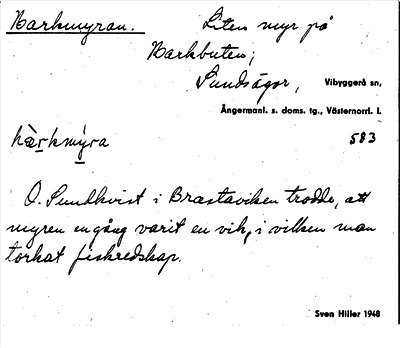 Harkmyran. Liten myr på
Harkbuten;
Sundsågor, Vibyggerå sn,
Ångermanl. s. doms. tg., Västernorrl. l.
hàrkmýra 583
O. Sundkvist i Brastaviken trodde, att
myren en gång varit en vik, i vilken man
torkat fiskredskap.
Sven Hiller 1948